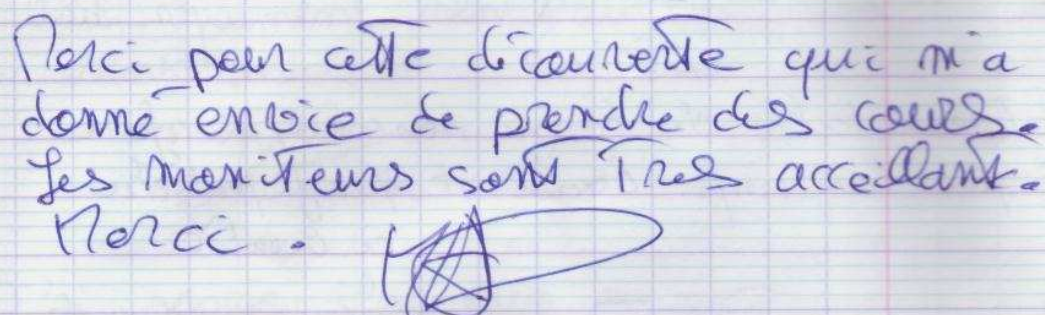 Merci pour cette découverte qui m'a
donné envie de prendre des cours.
Les moniteurs sont très acceillant.
Merci.